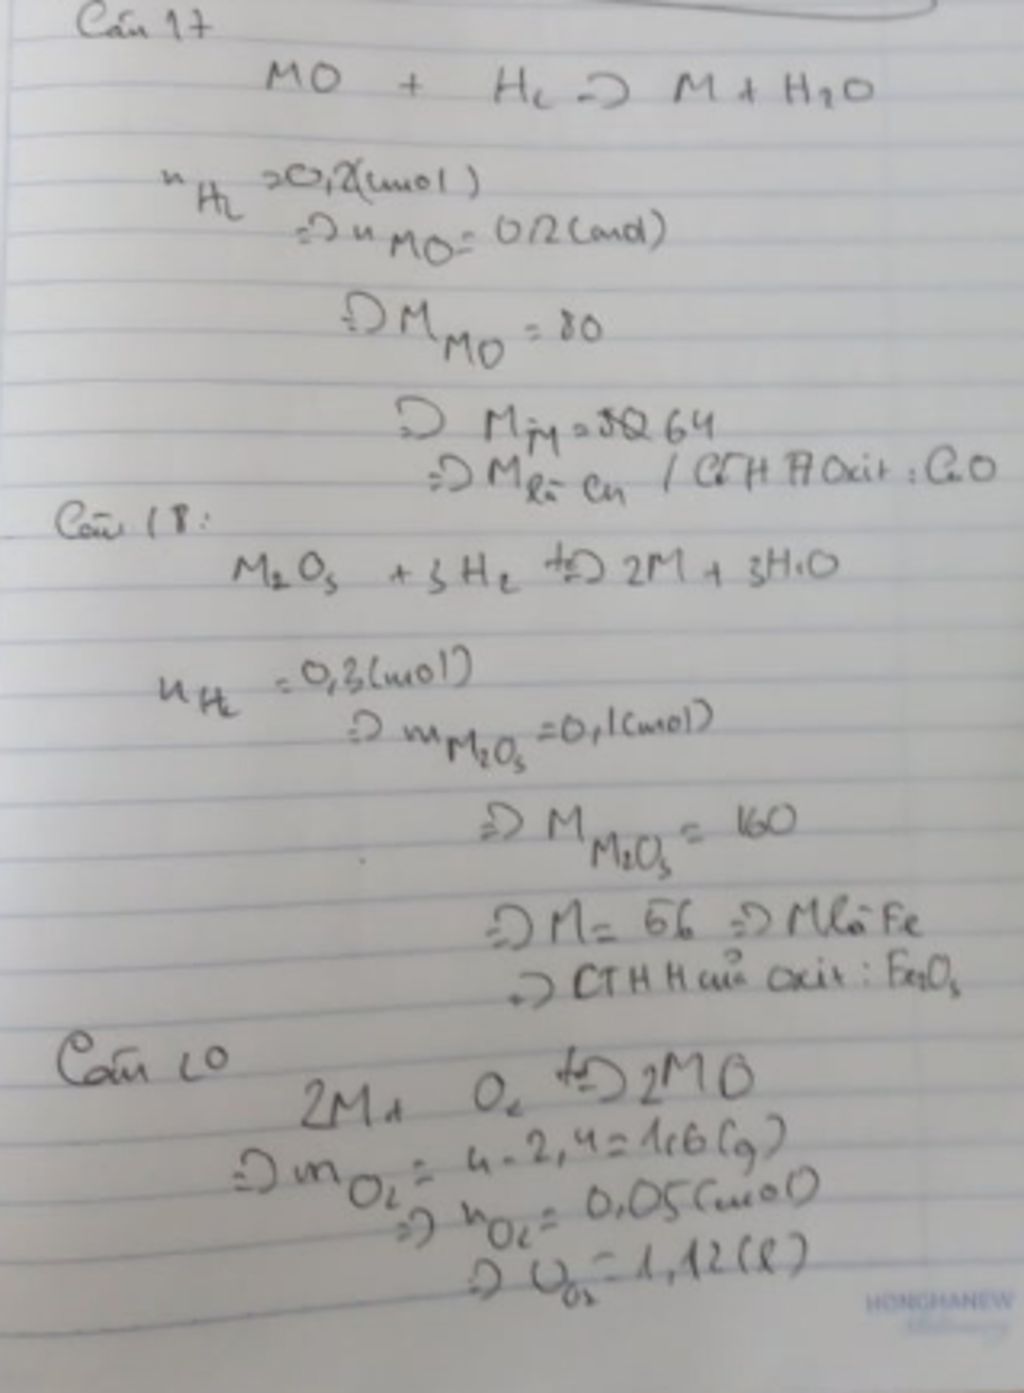 Câu 17
MO + H₂ => M + H₂O
n H₂ = 0,2 (mol)
=> n MO = 0,2 (mol)
=> M MO = 80
=> M M = 64
=> M là Cu / CTHH Oxit : CuO
Câu 18:
M₂O₃ + 3H₂ t° => 2M + 3H₂O
n H₂ = 0,3 (mol)
=> m M₂O₃ = 0,1 (mol)
=> M M₂O₃ = 160
=> M = 56 => M là Fe
=> CTHH của oxit : Fe₂O₃
Câu 20
2M + O₂ t° => 2MO
=> m O₂ = 4 - 2,4 = 1,6 (g)
=> n O₂ = 0,05 (mol)
=> V O₂ = 1,12 (l)
HONGHANEW
Stationery